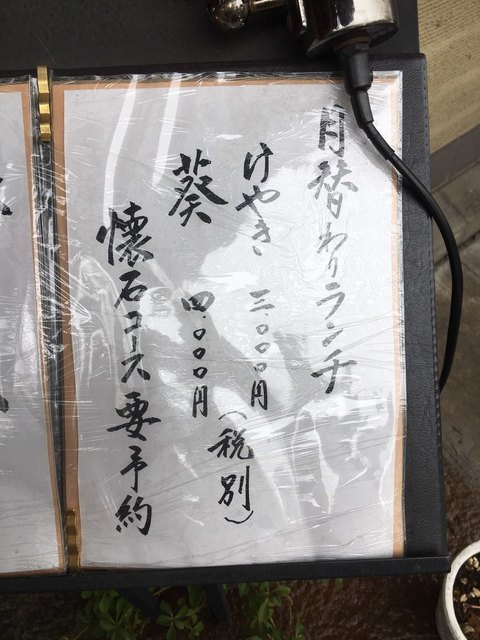 月替わりランチ
けやき 三.〇〇〇円
葵 四.〇〇〇円(税別)
懐石コース要予約